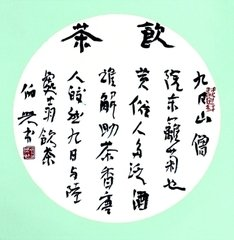 飲茶
九日山僧
院東籬菊也
黃俗人多泛酒
誰解助茶香唐
人皎然九日与陸
處士羽飲茶